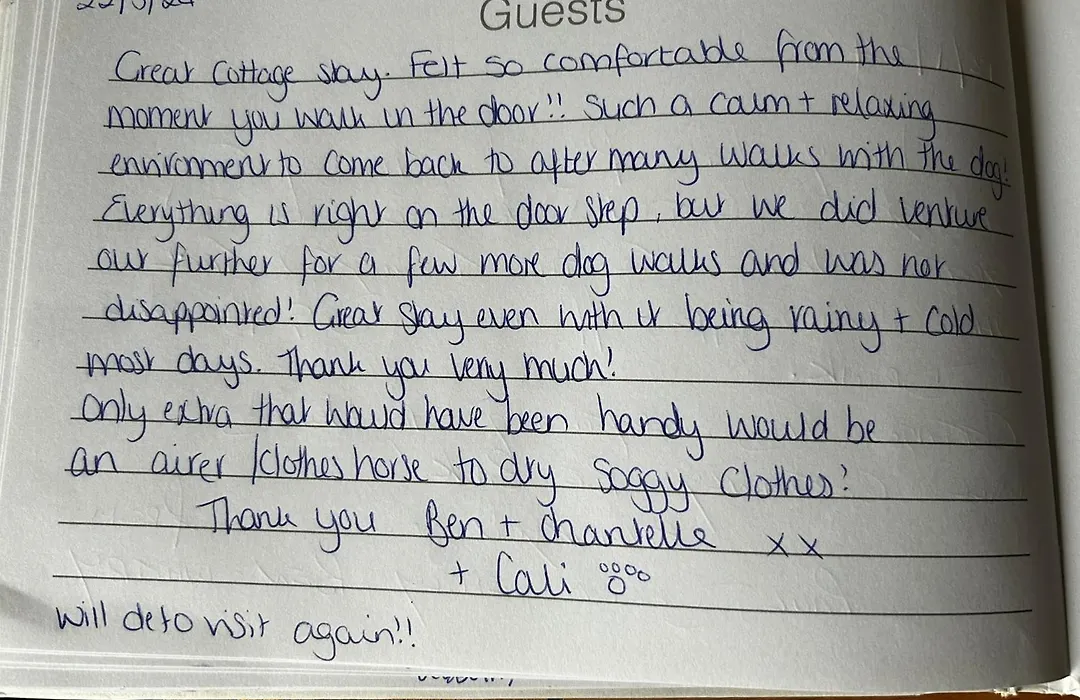 Guests
Great Cottage stay. Felt so comfortable from the
moment you walk in the door!! Such a calm + relaxing
environment to come back to after many walks with the dog!
Everything is right on the door step, but we did venture
out further for a few more dog walks and was not
disappointed! Great stay even with it being rainy + cold
most days. Thank you very much!
Only extra that would have been handy would be
an airer /clothes horse to dry soggy clothes!
Thank you Ben + Chantelle xx
+ Cali
will defo visit again!!